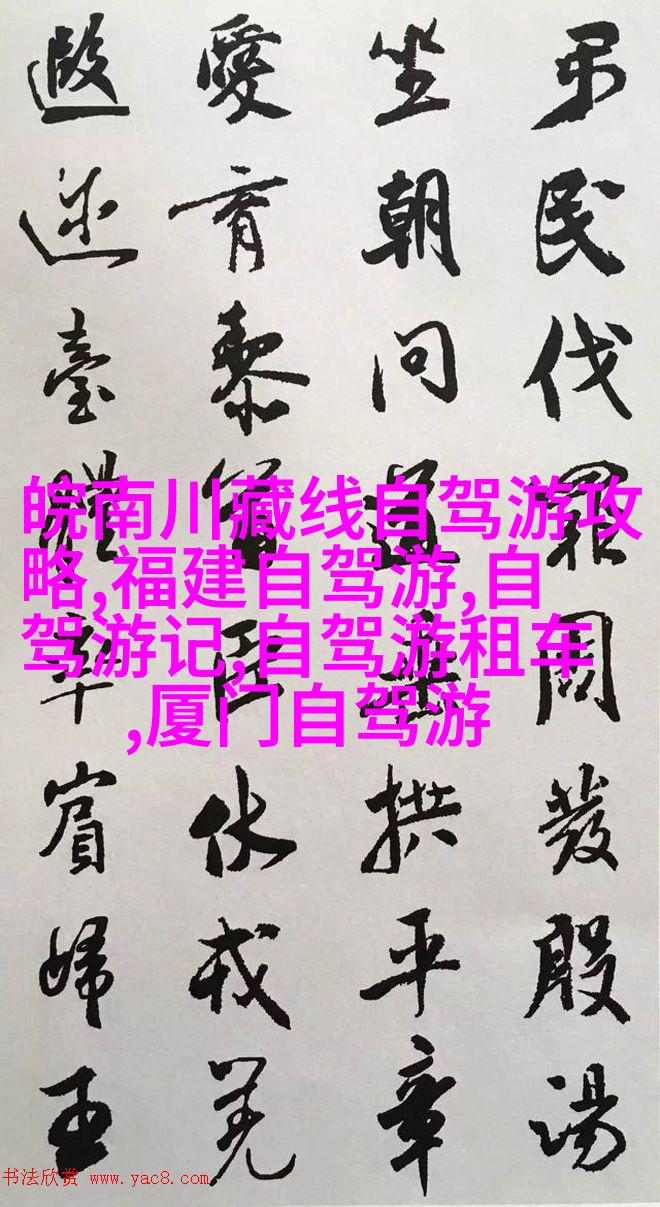 弔民伐罪周發殷湯
坐朝問道垂拱平章
愛育黎首臣伏戎羌
遐邇壹體率賓歸王
皖南川藏线自驾游攻
略,福建自驾游,自
驾游记,自驾游租车
,厦门自驾游
书法欣赏 www.yac8.com